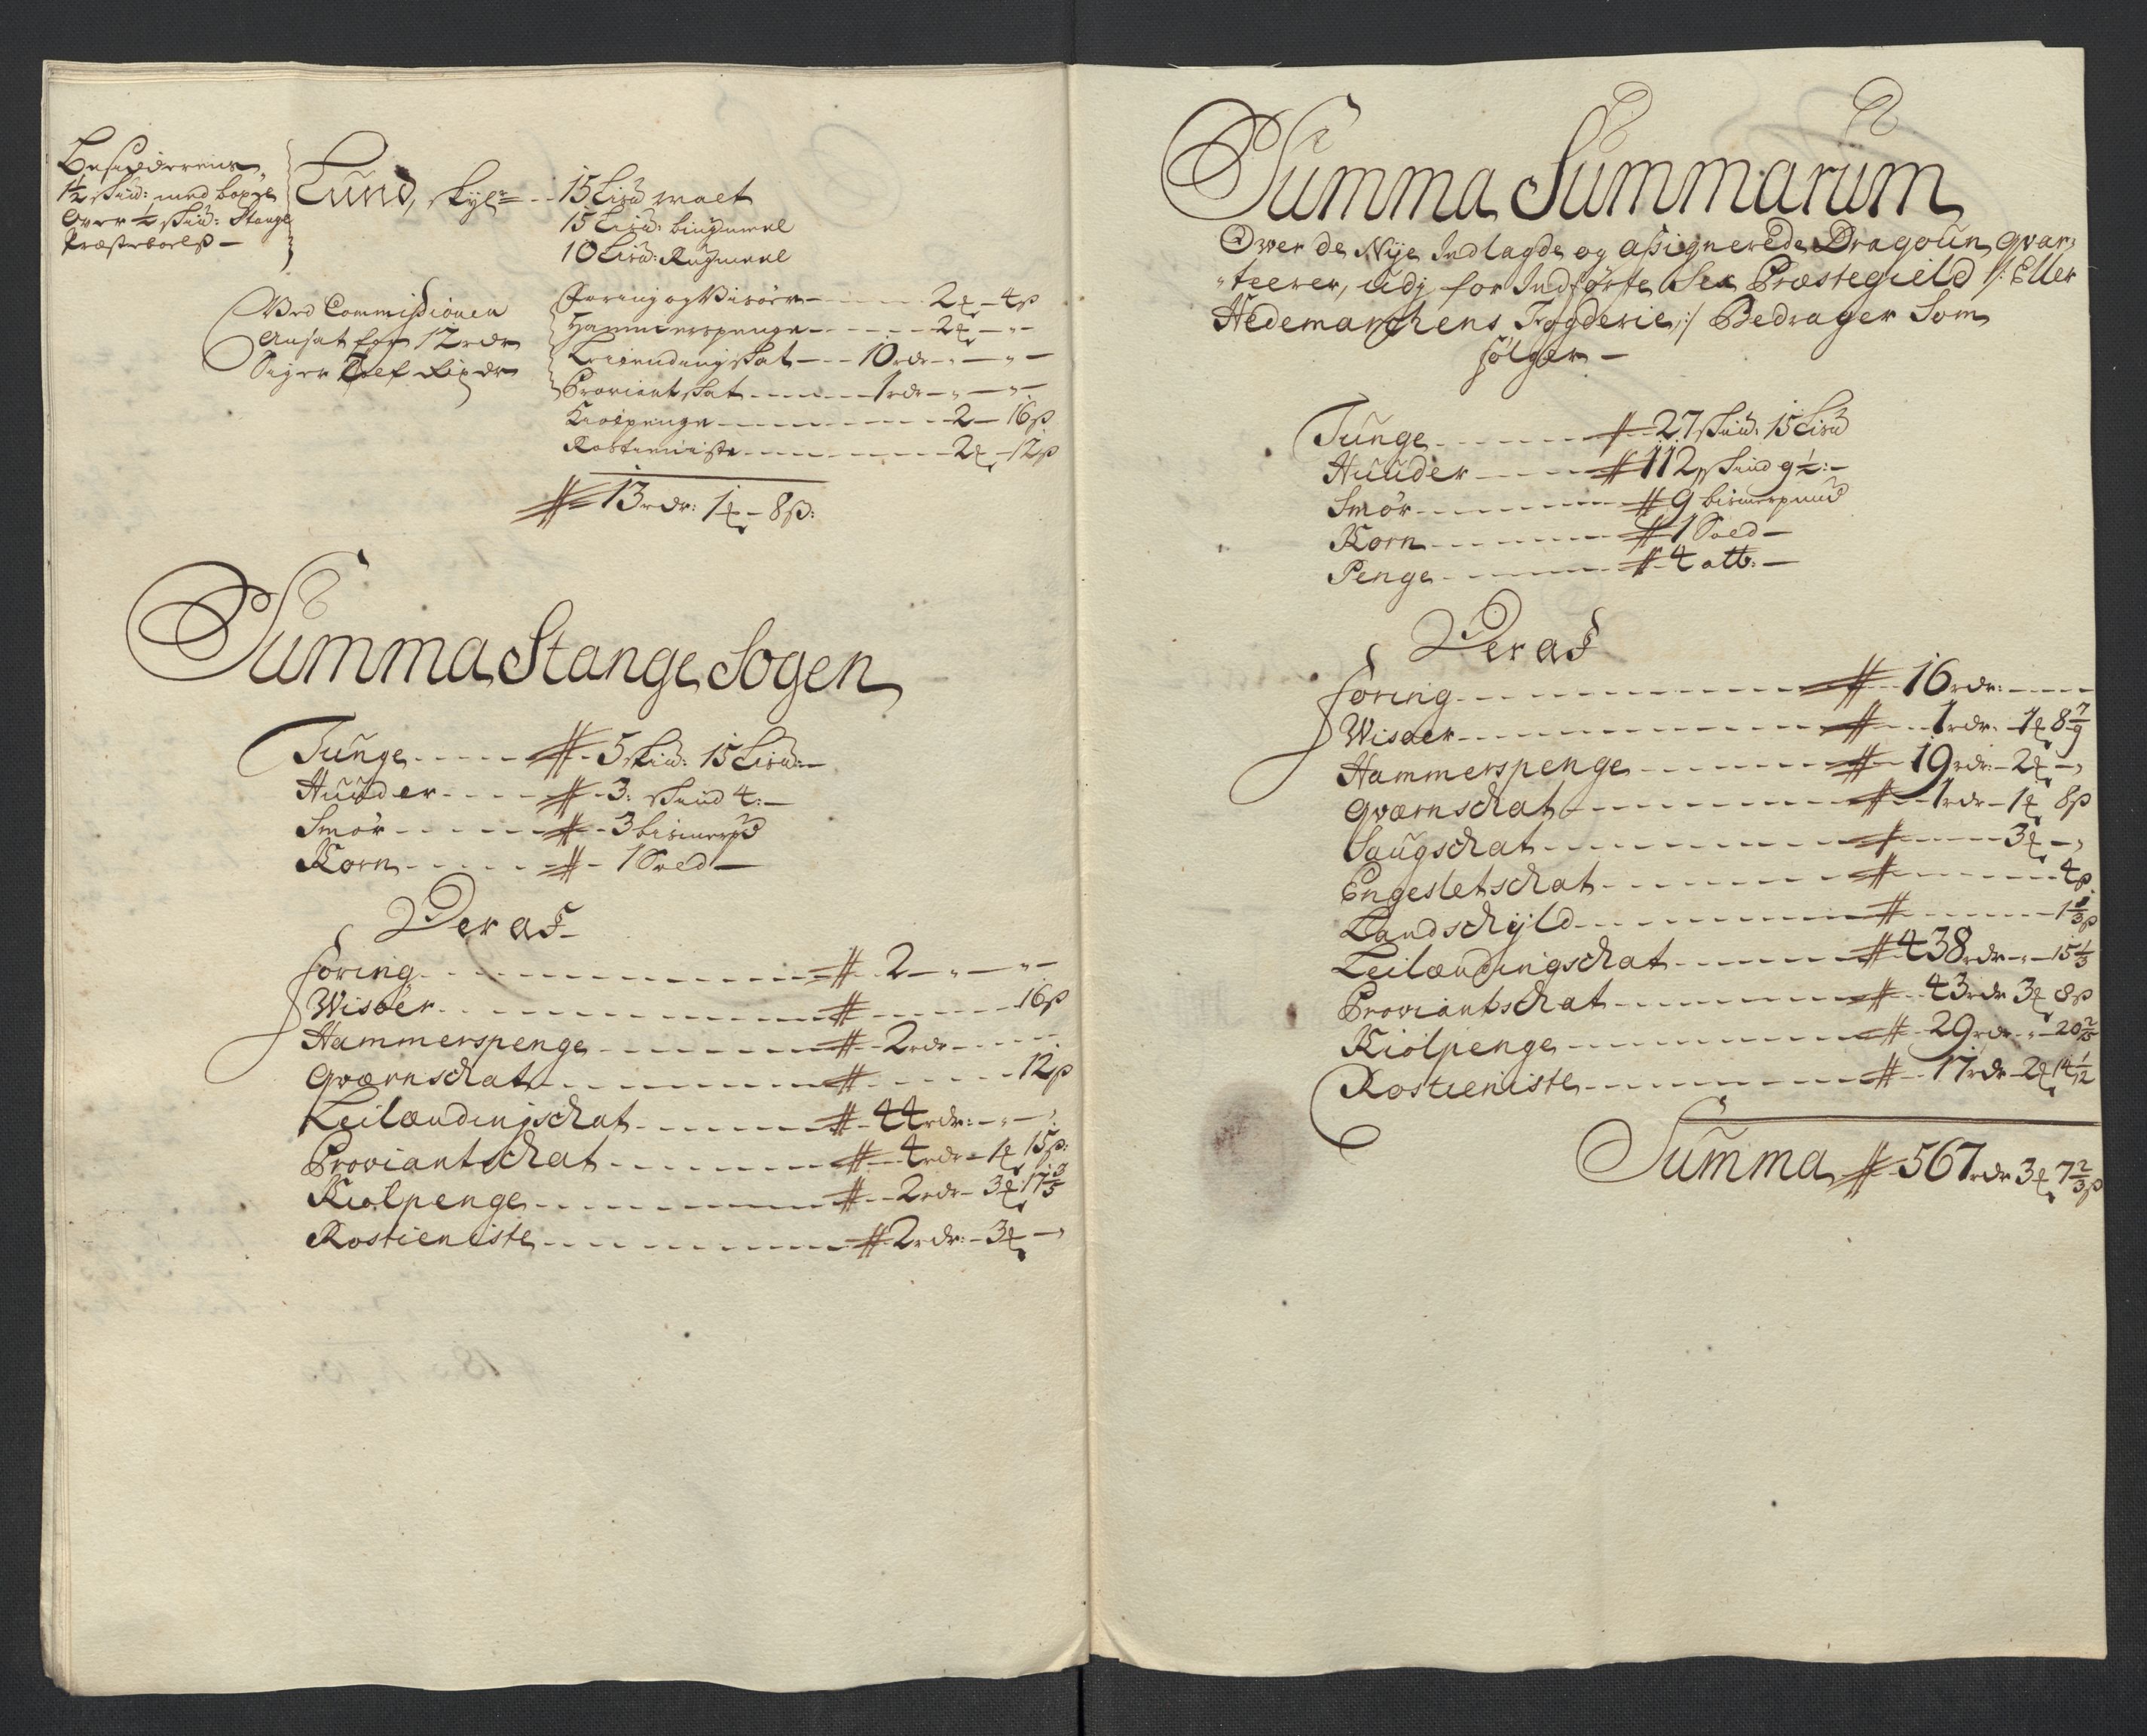 Besidderens
1½ skind: med boxel
Over ½ skind: Stange
Præsteboelß —
Lund, skyl:r - - 15 Lisd malt
15 Lisd: bÿgmeel
10 Lisd: Rugmeel
Ved Commissionen
Ansat for 12 rdr
Foring og Visøer — 2 ₰ — 4 ß
Hammerspenge — 2 ₰ — „ —
Leilendingskat — 10 rdr — „ — „ —
Proviantskat — 1 rdr — „ — „ —
Kiolpenge — 2 — 16 ß
Rostieniste — 2 ₰ — 12 ß
# 13 rdr: 1 ₰ — 8 ß:
Summa Stange Sogen
Tunge - - - - # - 5 skind: 15 Lisd: —
Huuder - - - - # - 3: skind 4: —
Smør - - - - # - 3 bismerpd
Korn - - - - # - 1 Sold —
Der af —
foring - - - - # - 2 — „ — „ —
Wisøer - - - - # - - - 16 ß
Hammerspenge - - - - # - 2 rdr - - -
Qværnschat - - - - # - - - 12 ß
Leilændingschat - - - - # - 44 rdr: - „ —
Proviantschat - - - - # - 4 rdr - 1 ₰ 15 ß:
Kiolpenge - - - - # - 2 rdr - 3 ₰ 17 3/5
Rostieniste - - - - # 2 rdr: - 3 ₰ —
Summa Summarum
Over de Nÿe Indlagde og assignerede Dragoun qvar,,
„teerer, udj for Indførte Sex Præstegield /: Eller
Hedemarchens Fogderie :/ Bedrager Som
følger —
Tunge - - - - # - 27 skind: 15 Lisd
Huuder - - - - # 112 skind 9½: —
Smør - - - - # 9 bismerpund
Korn - - - - # 1 Sold —
Penge - - - - # 4 att: —
Der af
foring - - - - # - 16 rdr: - - -
Wisøer - - - - # - 1 rdr - 1 ₰ 8 7/9
Hammerspenge - - - - # - 19 rdr - 2 ₰ —
Qværnschat - - - - # - 1 rdr - 1 ₰ 8 ß
Saugschat - - - - # - - - 3 ₰ —
Engesletschat - - - - # - - - 4 ß
Landschÿld - - - - # - - - 1 1/3 ß
Leilændingschat - - - - # 438 rdr - „ - 15 1/3
Proviantschat - - - - # - 43 rdr 3 ₰ 8 ß
Kiolpenge - - - - # - 29 rdr - „ - 20 2/5
Rostieniste - - - - # - 17 rdr 2 ₰ 14 1/12
Summa # 567 rdr 3 ₰ 7 2/3 ß